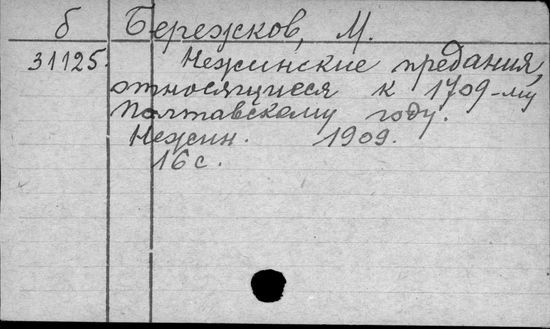 б Бережков, М.
31125. Нежинские предания,
относящиеся к 1709-му
Полтавскому году.
Нежин. 1909.
16 с.